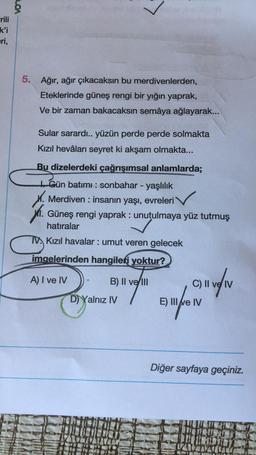 rili
k'i
ri,
5. Ağır, ağır çıkacaksın bu merdivenlerden,
Eteklerinde güneş rengi bir yığın yaprak,
Ve bir zaman bakacaksın semâya ağlayarak...
Sular sarardı.. yüzün perde perde solmakta
Kızıl hevâları seyret ki akşam olmakta...
Bu dizelerdeki çağrışımsal anlamlarda;
I. Gün batımı : sonbahar - yaşlılık
II. Merdiven : insanın yaşı, evreleri
III. Güneş rengi yaprak : unutulmaya yüz tutmuş
hatıralar
IV. Kızıl havalar : umut veren gelecek
imgelerinden hangileri yoktur?
A) I ve IV B) II ve III C) II ve IV
D) Yalnız IV E) III ve IV
Diğer sayfaya geçiniz.